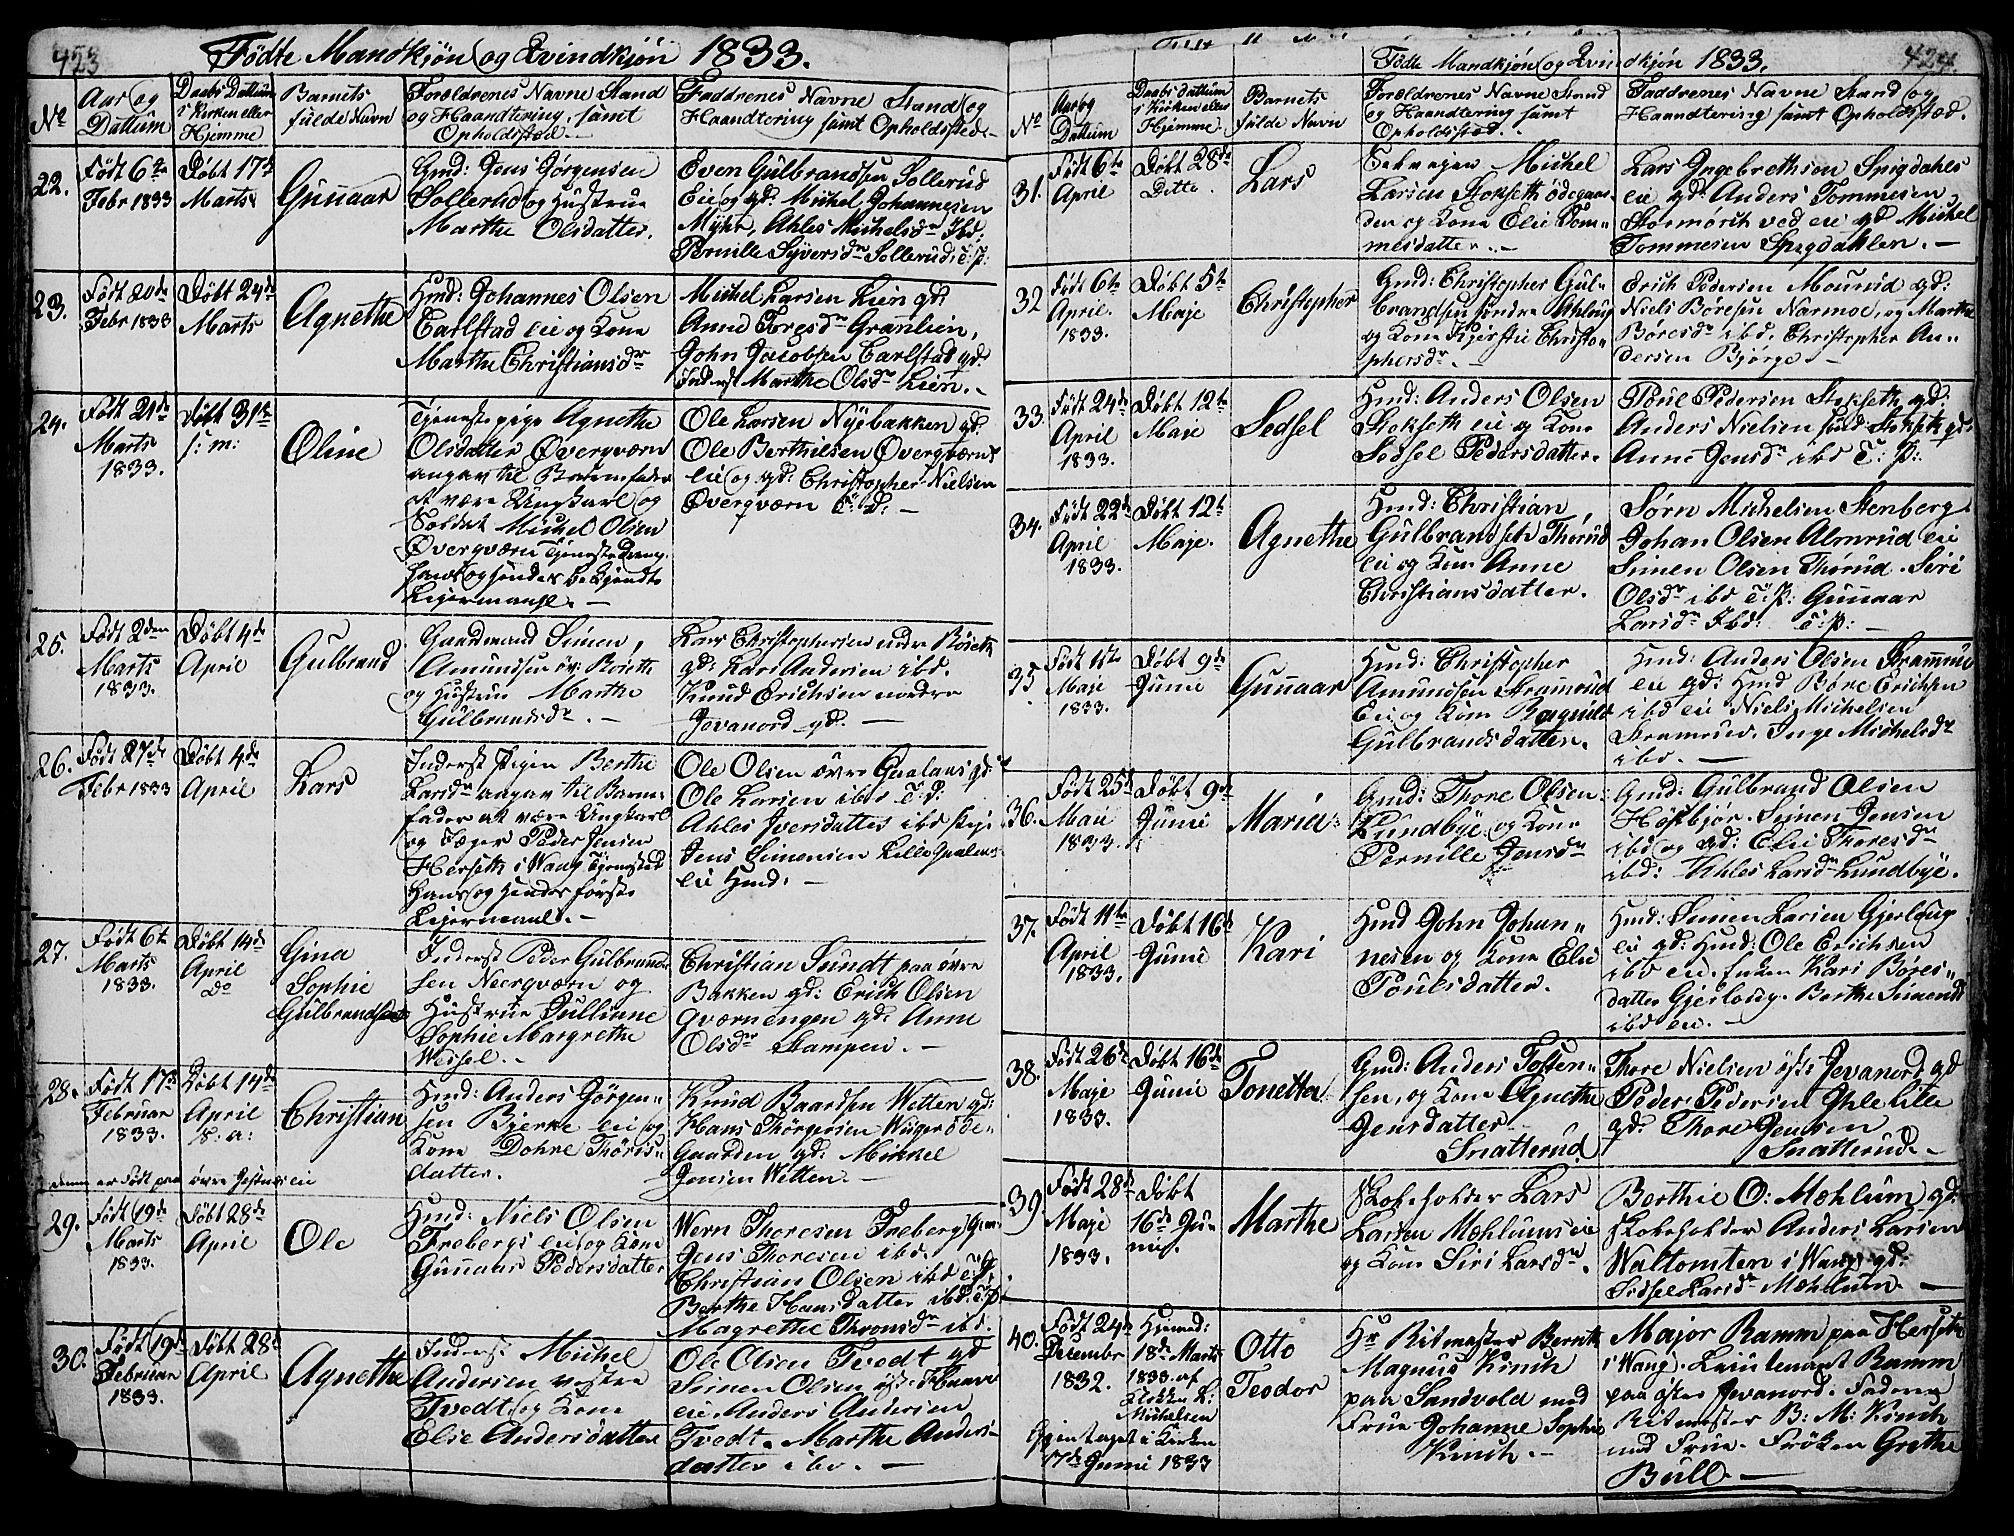 423
Födte Mandkjön og Qvindkjön 1833.
No
Aar og Dattum
Daabs Dattum i Kirken eller Hjemme
Barnets fulde Navn
Forældrenes Navne Stand og Haandtering, samt Opholdsstæd
Faddrenes Navne Stand og Haandtering samt Opholdsstede
22.
Födt 6te
Febr 1833
Döbt 17de
Marts
Gunnar
Gmd: Jens Jörgensen
Sollerud og Hustrue
Marthe Olsdatter.
Even Gulbrandsen Sollerud
Eie og gd: Michel Johannesen
Myhr, Ahles Michelsdr Ibd:
Pernille Syversdr Sollerud, T: P:
23.
Födt 20de
Febr 1833
Döbt 24de
Marts
Agnethe
Hmd: Johannes Olsen
Carlstad eie og Kone
Marthe Christiansdr
Michel Larsen Lien gd:
Anne Toresdr Granlien,
John Jacobsen Carlstad gd:
Inderst Marthe Olsdr Lien. –
24.
Födt 21de
Marts
1833.
Döbt 31te
s: m:
Oline
Tjenestepige Agnethe
Olsdatter Överqværn
angav til Barnefader
at være Ungkarl og
Soldat Michel Olsen
Överqværn Tjenestedreng
hans og hendes bekjendte
Leiermaal. –
Ole Larsen Nyebakken gd:
Ole Berthelsen Överqværn
eie og gd: Christopher Nielsen
Överqværn T: D: –
25.
Födt 2den
Marts
1833.
Döbt 4de
April
Gulbrand
Gaardmand Simen
Amundsen
og Hustrue Marthe
Gulbrandsdr. –
Lars Christophersen
gd: Lars Andersen ibd.
Knud Erichsen nordre
Jevanord gd. –
26.
Födt 27de
Febr 1833
Döbt 4de
April
Lars
Inderst Pigen Berthe
Larsdr angav til Barne-
fader at være Ungkarl
og Jæger Peder Jensen
Herseth i Wang Tjenestead
Hans og hendes förste
Leiermaal. –
Ole Olsen övre gd:
Ole Larsen ibd T: d:
Ahles Iversdatter ibd Pige
Jens Simensen Lille
eie Hmd. –
27.
Födt 6te
Marts
1833.
Döbt 14de
April
do
Gina
Sophie
Gulbrandsen
Inderst Peder Gulbrand-
sen Neerqværn og
Hustrue Jullianne
Sophie Margrethe
Wessel. –
Christian Sundt paa övre
Bakken gd: Erich Olsen
Qværnengen gd: Anne
Olsdr Stampen. –
28.
Födt 17de
Februar
1833.
Döbt 14de
April
s: a:
Christian
Hmd: Anders Jörgen-
sen Bjerke eie og
Kone Dohre Thöris-
datter.
Knud Baardsen Witten gd:
Hans Thörgersen öde-
Gaarden gd: Mikkel
Jensen Witten. –
denne er Födt paa övre eie
29.
Födt 19de
Marts
1833.
Döbt 28de
April
Ole
Hmd: Niels Olsen
Freberg eie og Kone
Gunnar Pedersdatter
Wern Thoresen Freberg
Jens Thoresen ibd.
Christian Olsen ibd
Berthe Hansdatter ibd. T: P:
Magrethe Thronsdr ibd.
30.
Födt 19de
Februar
1833.
Döbt 28de
April
Agnethe
Inderst Michel
Andersen vestre
Tvedt og Kone
Elie Andersdatter
Ole Olsen Tvedt gd
Simen Olsen
eie. Anders Andersen
Tvedt. Marthe Anders-
datter ibd. –
424.
Födte Mandkjön og Qvindkjön 1833.
No
Aar og Dattum
Daabs dattum i Kirken eller Hjemme
Barnets fulde Navn
Forældrenes Navne Stand og Haandtering samt Opholdsstæd.
Faddrenes Navne Stand og Haandtering samt Opholdsstæd.
31.
Födt 6te
April
Döbt 28de
Ditto.
Lars
Michel
Larsen Stokseth ödegaar-
den og Kone Elie Tom-
mesdatter. –
Lars Ingebrethsen Spigdahls
eie gd: Anders Tommesen
Stormörch ved eie gd Michel
Tommesen Spigdahlen. –
32
Födt 6te
April.
1833.
Döbt 5te
Maje
Christopher
Gmd: Christopher Gul-
brandsen söndre Ahlrug
og Kone Kjerstie Christo-
phersdr. –
Erich Pedersen Mourud gd:
Niels Böresen Narmoe, og Marthe
Böresdr ibd. Christopher An-
dersen Björge –
33.
Födt 24de
April
1833.
Döbt 12te
Maje
Sedsel
Hmd: Anders Olsen
Stokseth eie og Kone
Sedsel Pedersdatter.
Poul Pedersen Stokseth gd:
Anders Nielsen sönd: Stokseth gd
Anne Jensdr ibd T: P:
34.
Födt 22de
April
1833.
Döbt 12te
Maje.
Agnethe
Hmd: Christian
Gulbrandsen Thörud
eie og Kone Anne
Christiansdatter.
Sörn Michelsen Stenberg.
Johan Olsen Almrud eie
Simen Olsen Thörud. Siri
Olsdr ibd T: P: Gunnar
Larsdr Ibd: T: P: –
35.
Födt 1te
Maje
1833.
Döbt 9de
Junie
Gunnar
Hmd: Christopher
Amundsen Stramrud
Eie og Kone Ragnild
Gulbrandsdatter.
Hmd: Anders Olsen Stramrud
eie gd: Hmd Böre Erichsen
ibd eie Niels Michelsen
Stramrud. Inge Michelsdr
ibd. –
36.
Födt 25de
Mai
1833.
Döbt 9de
Junie
Maria
Gmd: Thore Olsen
Lundbye og Kone
Pernille Jensdr
Gmd: Gulbrand Olsen
Höstbjör. Simen Jensen
ibd og gd: Elie Thoresdr
ibd: Ahles Larsdr Lundbye.
37.
Födt 11te
April
1833.
Döbt 16de
Junie
Kari
Hmd John Johan-
nesen og Kone Elie
Poulsdatter.
Hmd: Simen Larsen Gjerlaug
eie gd: Hmd: Ole Erichsen
ibd eie. Enken Kari Böres-
datter Gjerlaug. Berthe Simensdr
ibd eie. –
38.
Födt 26de
Maje
1833.
Döbt 16de
Junie
Tonetta
Gmd: Anders Tosten-
sen, og Kone Agnethe
Jensdatter
Snatterud.
Thore Nielsen öst: Jevanord gd
Peder Pedersen Ihle lille
gd: Thore Jensen
Snatterud. –
39.
Födt 28de
Maje
1833.
Döbt
16de Ju-
nie.
Marthe
Skoleholder Lars
Larsen Mæhlums eie
og Kone Siri Larsdr.
Berthie O: Mæhlum gd:
Skoleholder Anders Larsen
Waltomten i Wang gd:
Sidsel Larsdr Mæhlum. –
40.
Födt 24de
Decembr
1832.
Hjemed:
18de Marts
1833. af
Klokker L:
Michelsen
Gjentaget i Kirken
17de Junie 1833
Otto
Teodor
Hr Ritmester Bernth
Magnus Kinch
paa Sandvold med
Frue Johanne Sophie
Kinch. –
Major Ramm paa Herseth
i Wang. Leutenant Ramm
paa öster Jevanord. Faderen
Ritmester B: M: Kinch
med Frue. Fröken Grethe
Bull. –